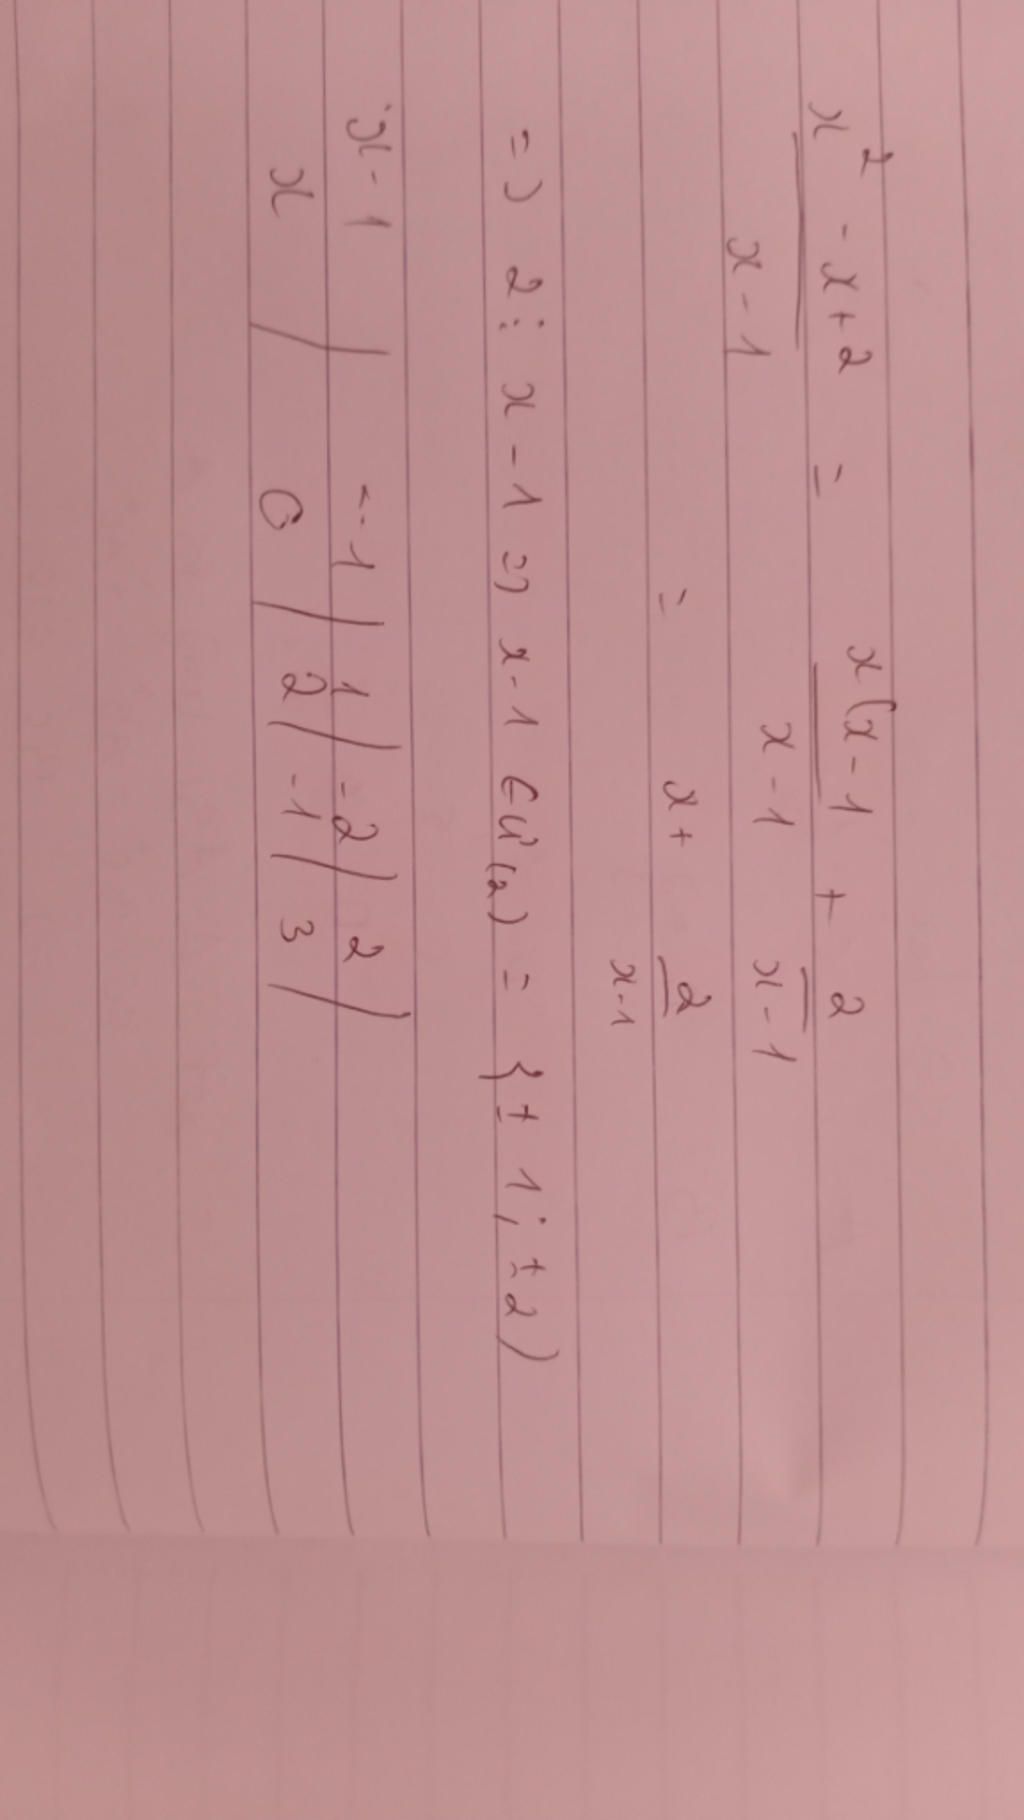 x² - x + 2 / x - 1 = x(x - 1 / x - 1 + 2 / x - 1
= x + 2 / x - 1
=> 2 ⋮ x - 1 => x - 1 ∈ Ư(2) = {± 1 ; ± 2)
x - 1 | -1 | 1 | -2 | 2 |
x | 0 | 2 | -1 | 3 |